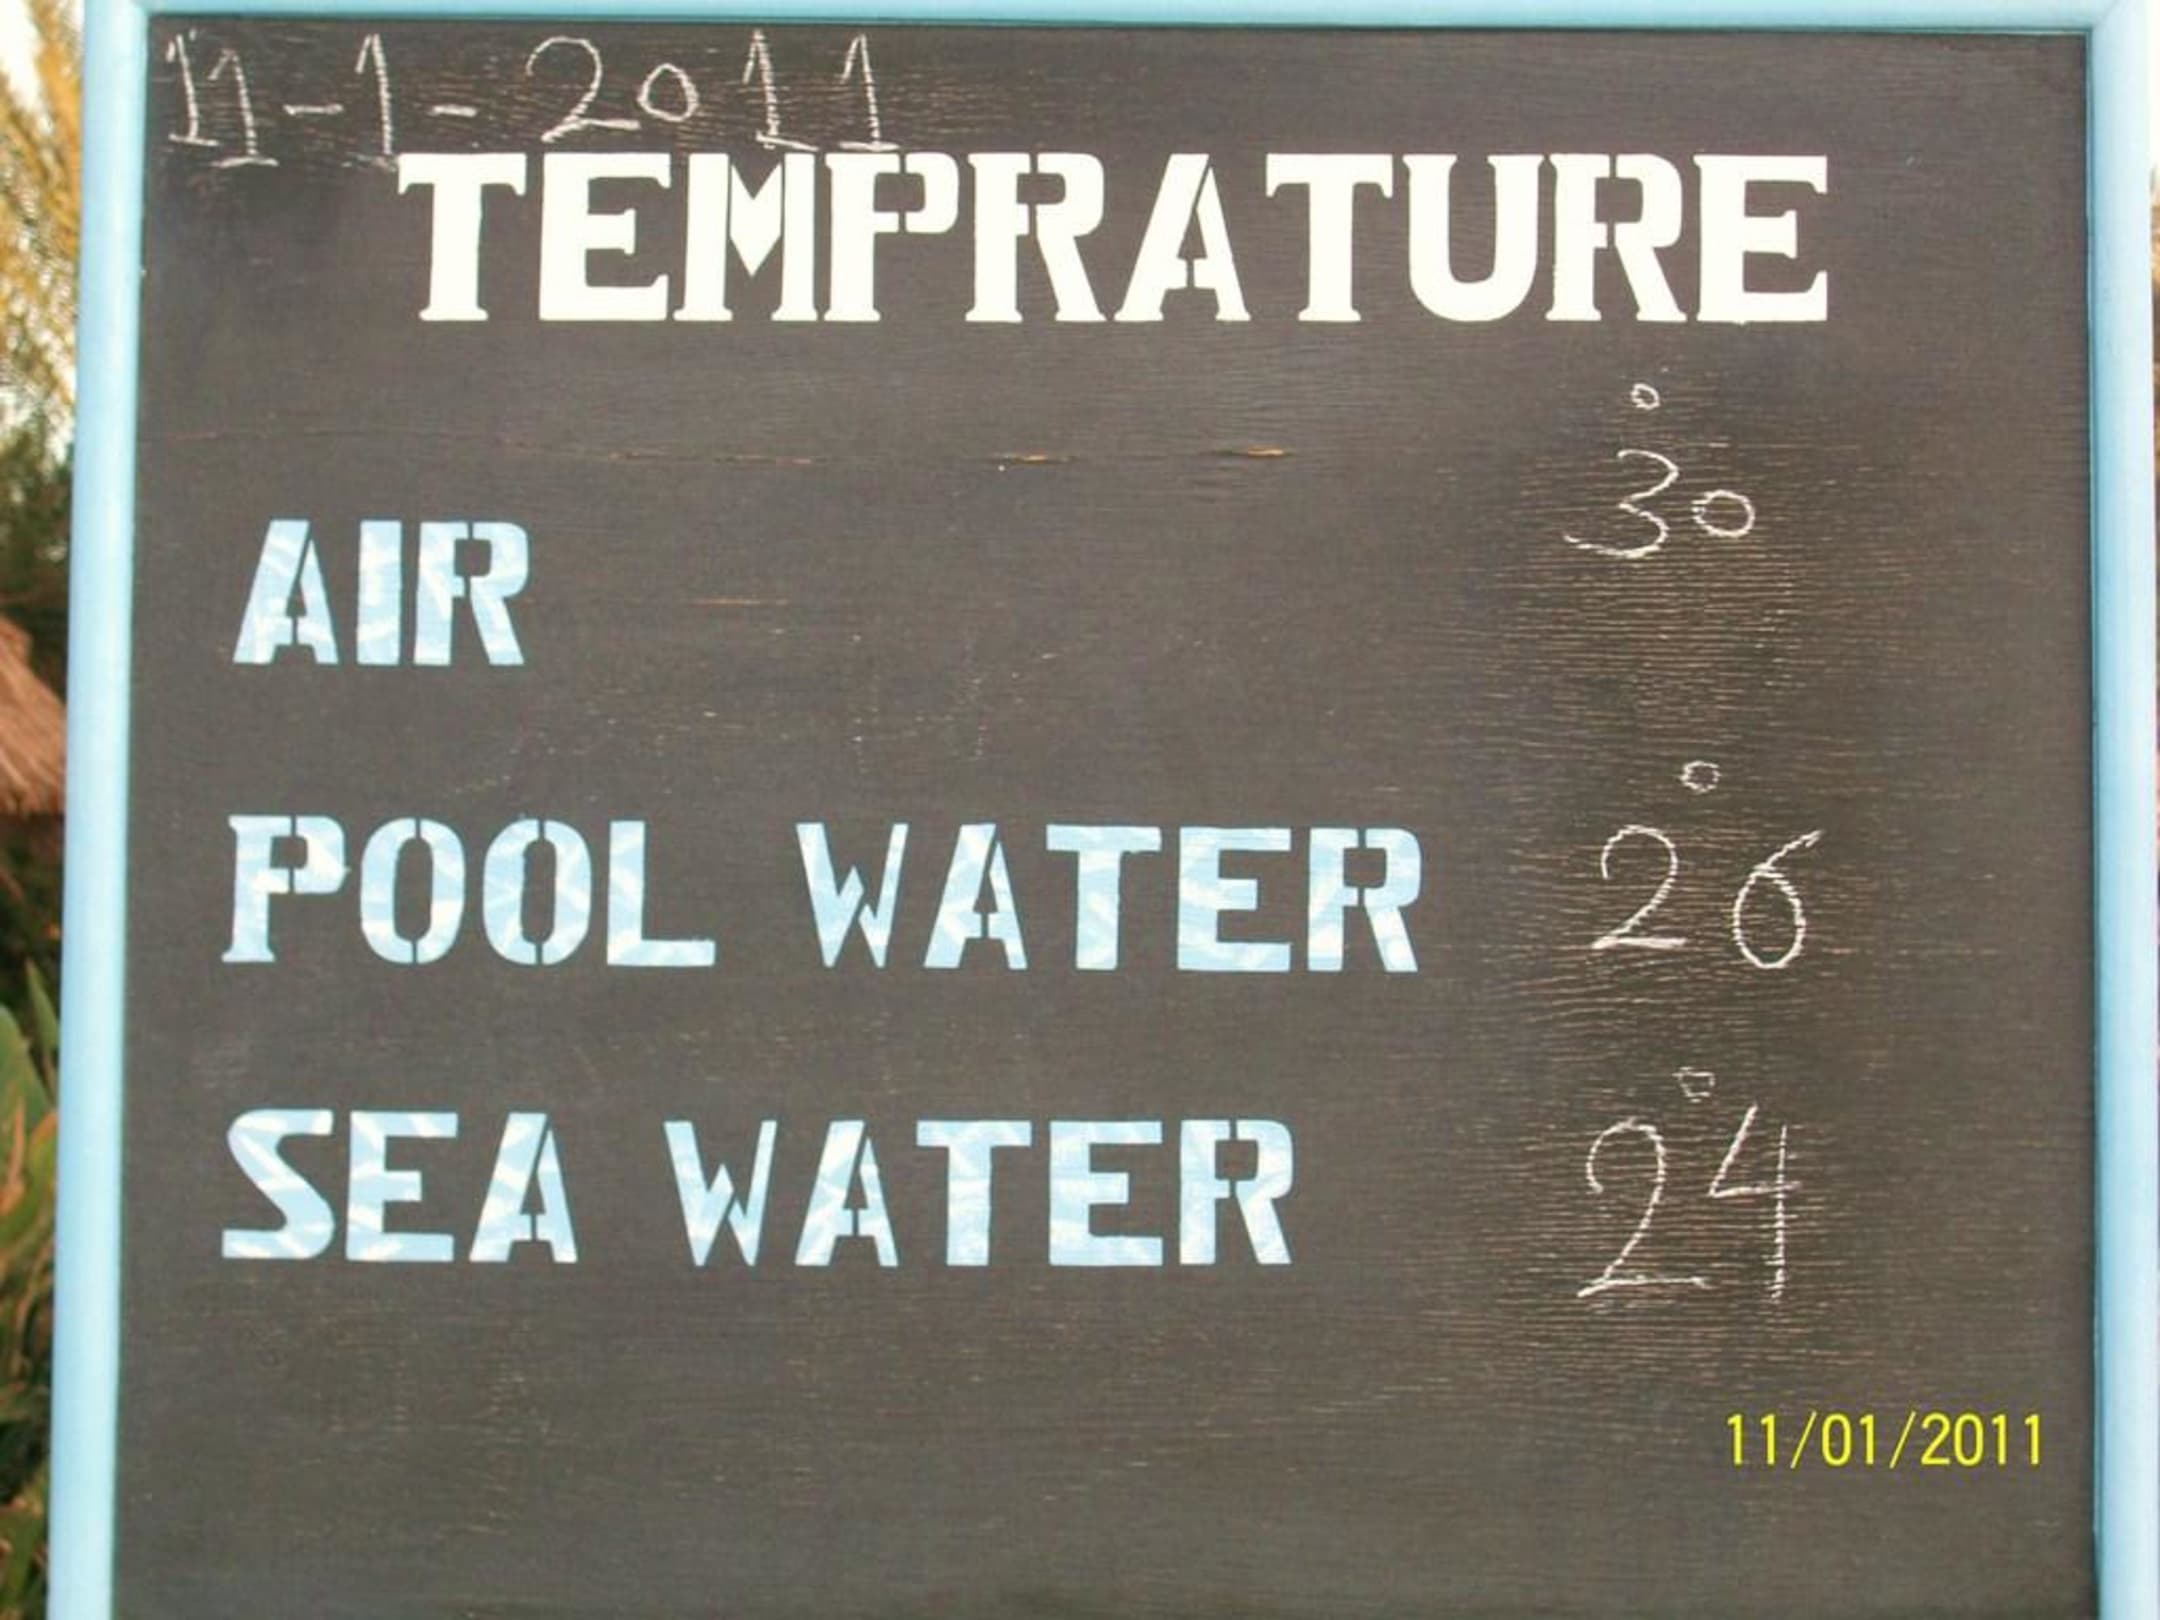 11-1-2011
TEMPRATURE
AIR 30°
POOL WATER 26°
SEA WATER 24°
11/01/2011